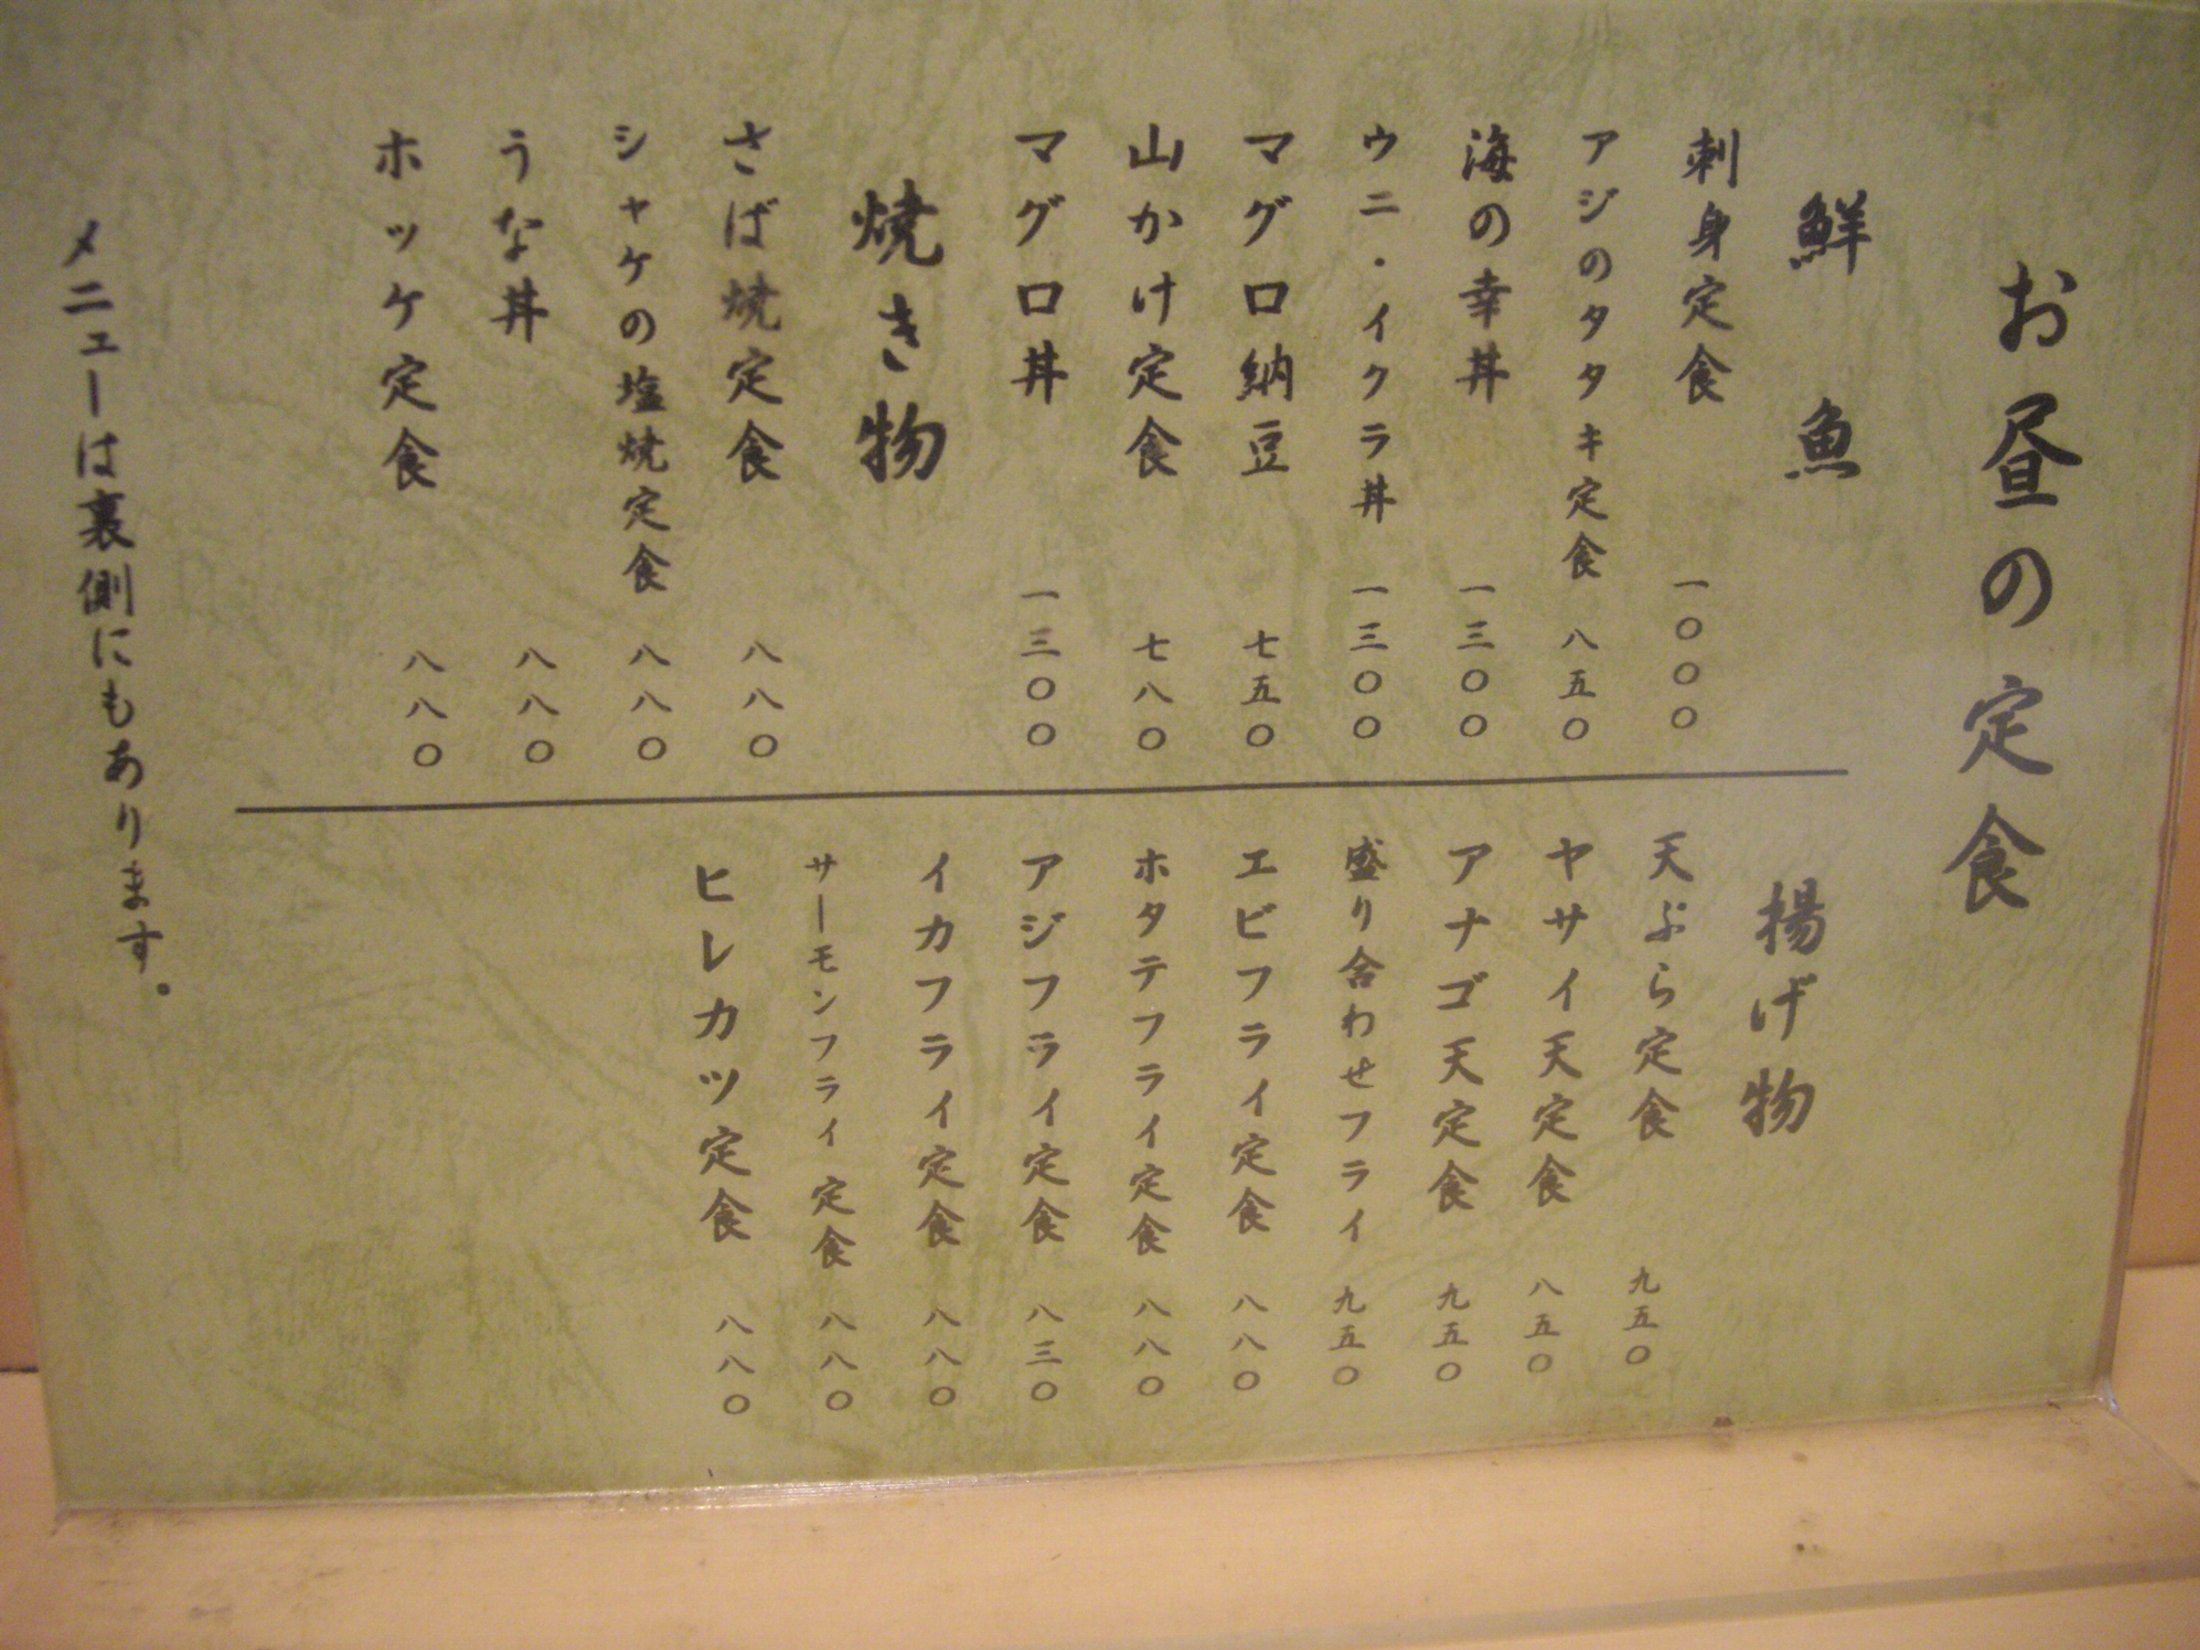 お昼の定食
鮮魚
刺身定食 一〇〇〇
アジのタタキ定食 八五〇
海の幸丼 一三〇〇
ウニ・イクラ丼 一三〇〇
マグロ納豆 七五〇
山かけ定食 七八〇
マグロ丼 一三〇〇
焼き物
さば焼定食 八八〇
シャケの塩焼定食 八八〇
うな丼 八八〇
ホッケ定食 八八〇
揚げ物
天ぷら定食 九五〇
ヤサイ天定食 八五〇
アナゴ天定食 九五〇
盛り合わせフライ 九五〇
エビフライ定食 八八〇
ホタテフライ定食 八八〇
アジフライ定食 八三〇
イカフライ定食 八八〇
サーモンフライ定食 八八〇
ヒレカツ定食 八八〇
メニューは裏側にもあります。